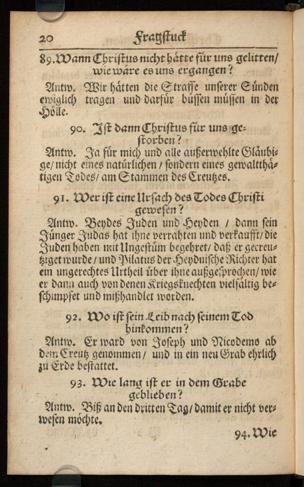 20 Fragstuck
89. Wann Christus nicht hätte für uns gelitten/
wie wäre es uns ergangen?
Antw. Wir hätten die Straffe unserer Sünden
ewiglich tragen und darfür büssen müssen in der
Hölle.
90. Ist dann Christus für uns ge-
storben?
Antw. Ja für mich und alle außerwehlte Gläubi-
ge/ nicht eines natürlichen/ sondern eines gewaltthä-
tigen Todes/ am Stammen des Creutzes.
91. Wer ist eine Ursach des Todes Christi
gewesen?
Antw. Beydes Juden und Heyden / dann sein
Jünger Judas hat ihne verrahten und verkaufft/ die
Juden haben mit Ungestüm begehret/ daß er gecreu-
tziget wurde/ und Pilatus der Heydnische Richter hat
ein ungerechtes Urtheil über ihne außgesprochen/ wie
er dann auch von denen Kriegsknechten vielfältig be-
schimpfet und mißhandlet worden.
92. Wo ist sein Leib nach seinem Tod
hinkommen?
Antw. Er ward von Joseph und Nicodemo ab
dem Creutz genommen/ und in ein neu Grab ehrlich
zu Erde bestattet.
93. Wie lang ist er in dem Grabe
geblieben?
Antw. Biß an den dritten Tag/ damit er nicht ver-
wesen möchte.
94. Wie